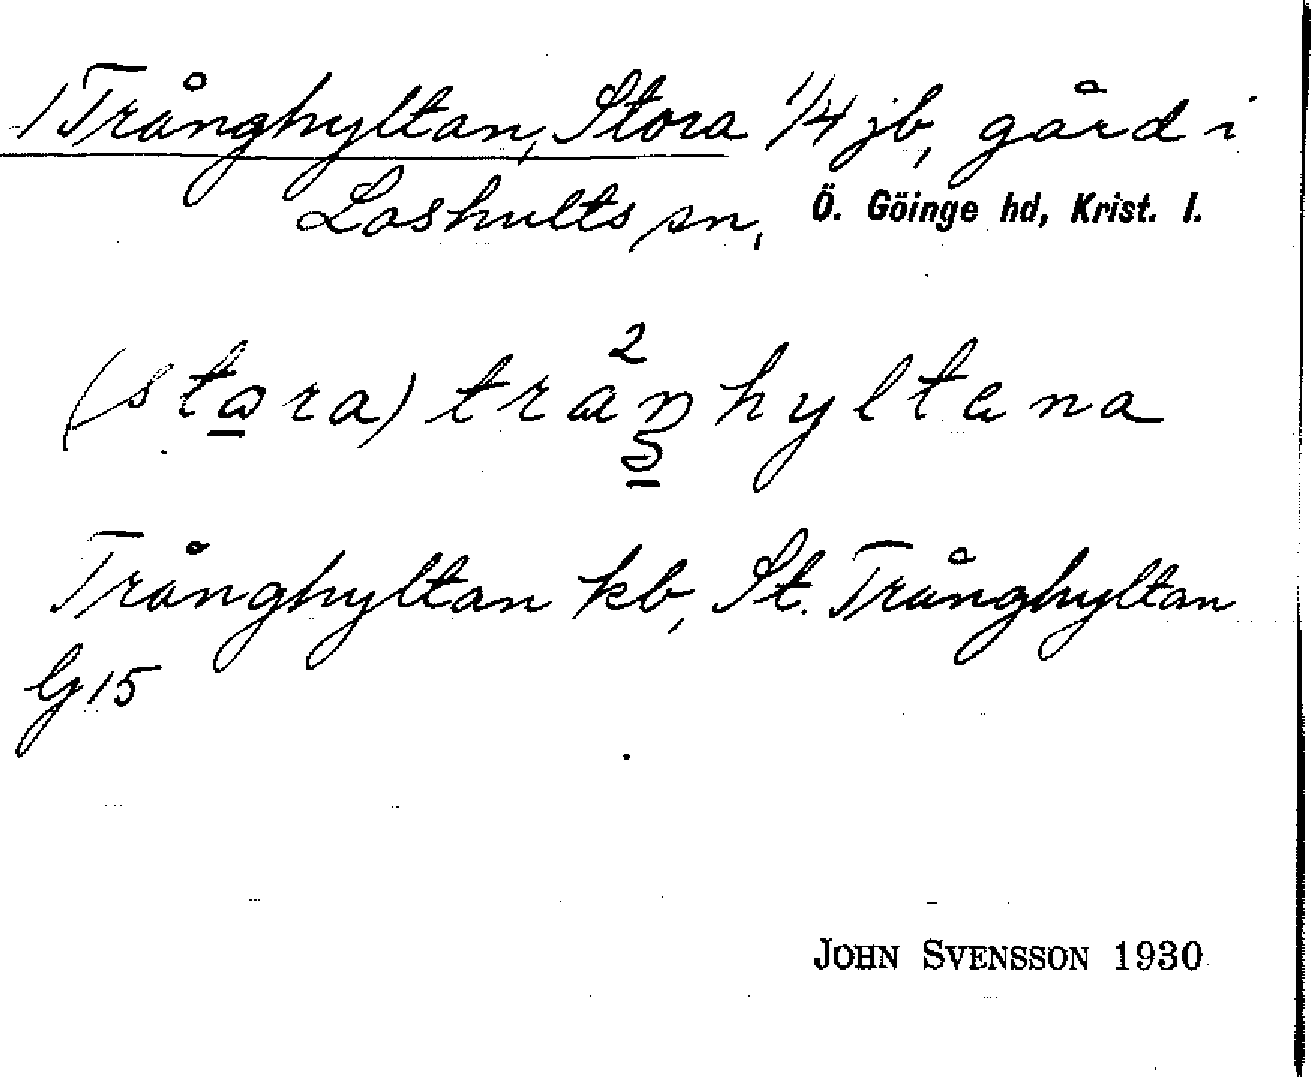 1 Trånghyltan, Stora 1/4 jb, gård i
Loshults sn, Ö. Göinge hd, Krist. l.
(stora) tra2ŋhyltena
Trånghyltan kb, St. Trånghyltan
G 15
JOHN SVENSSON 1930